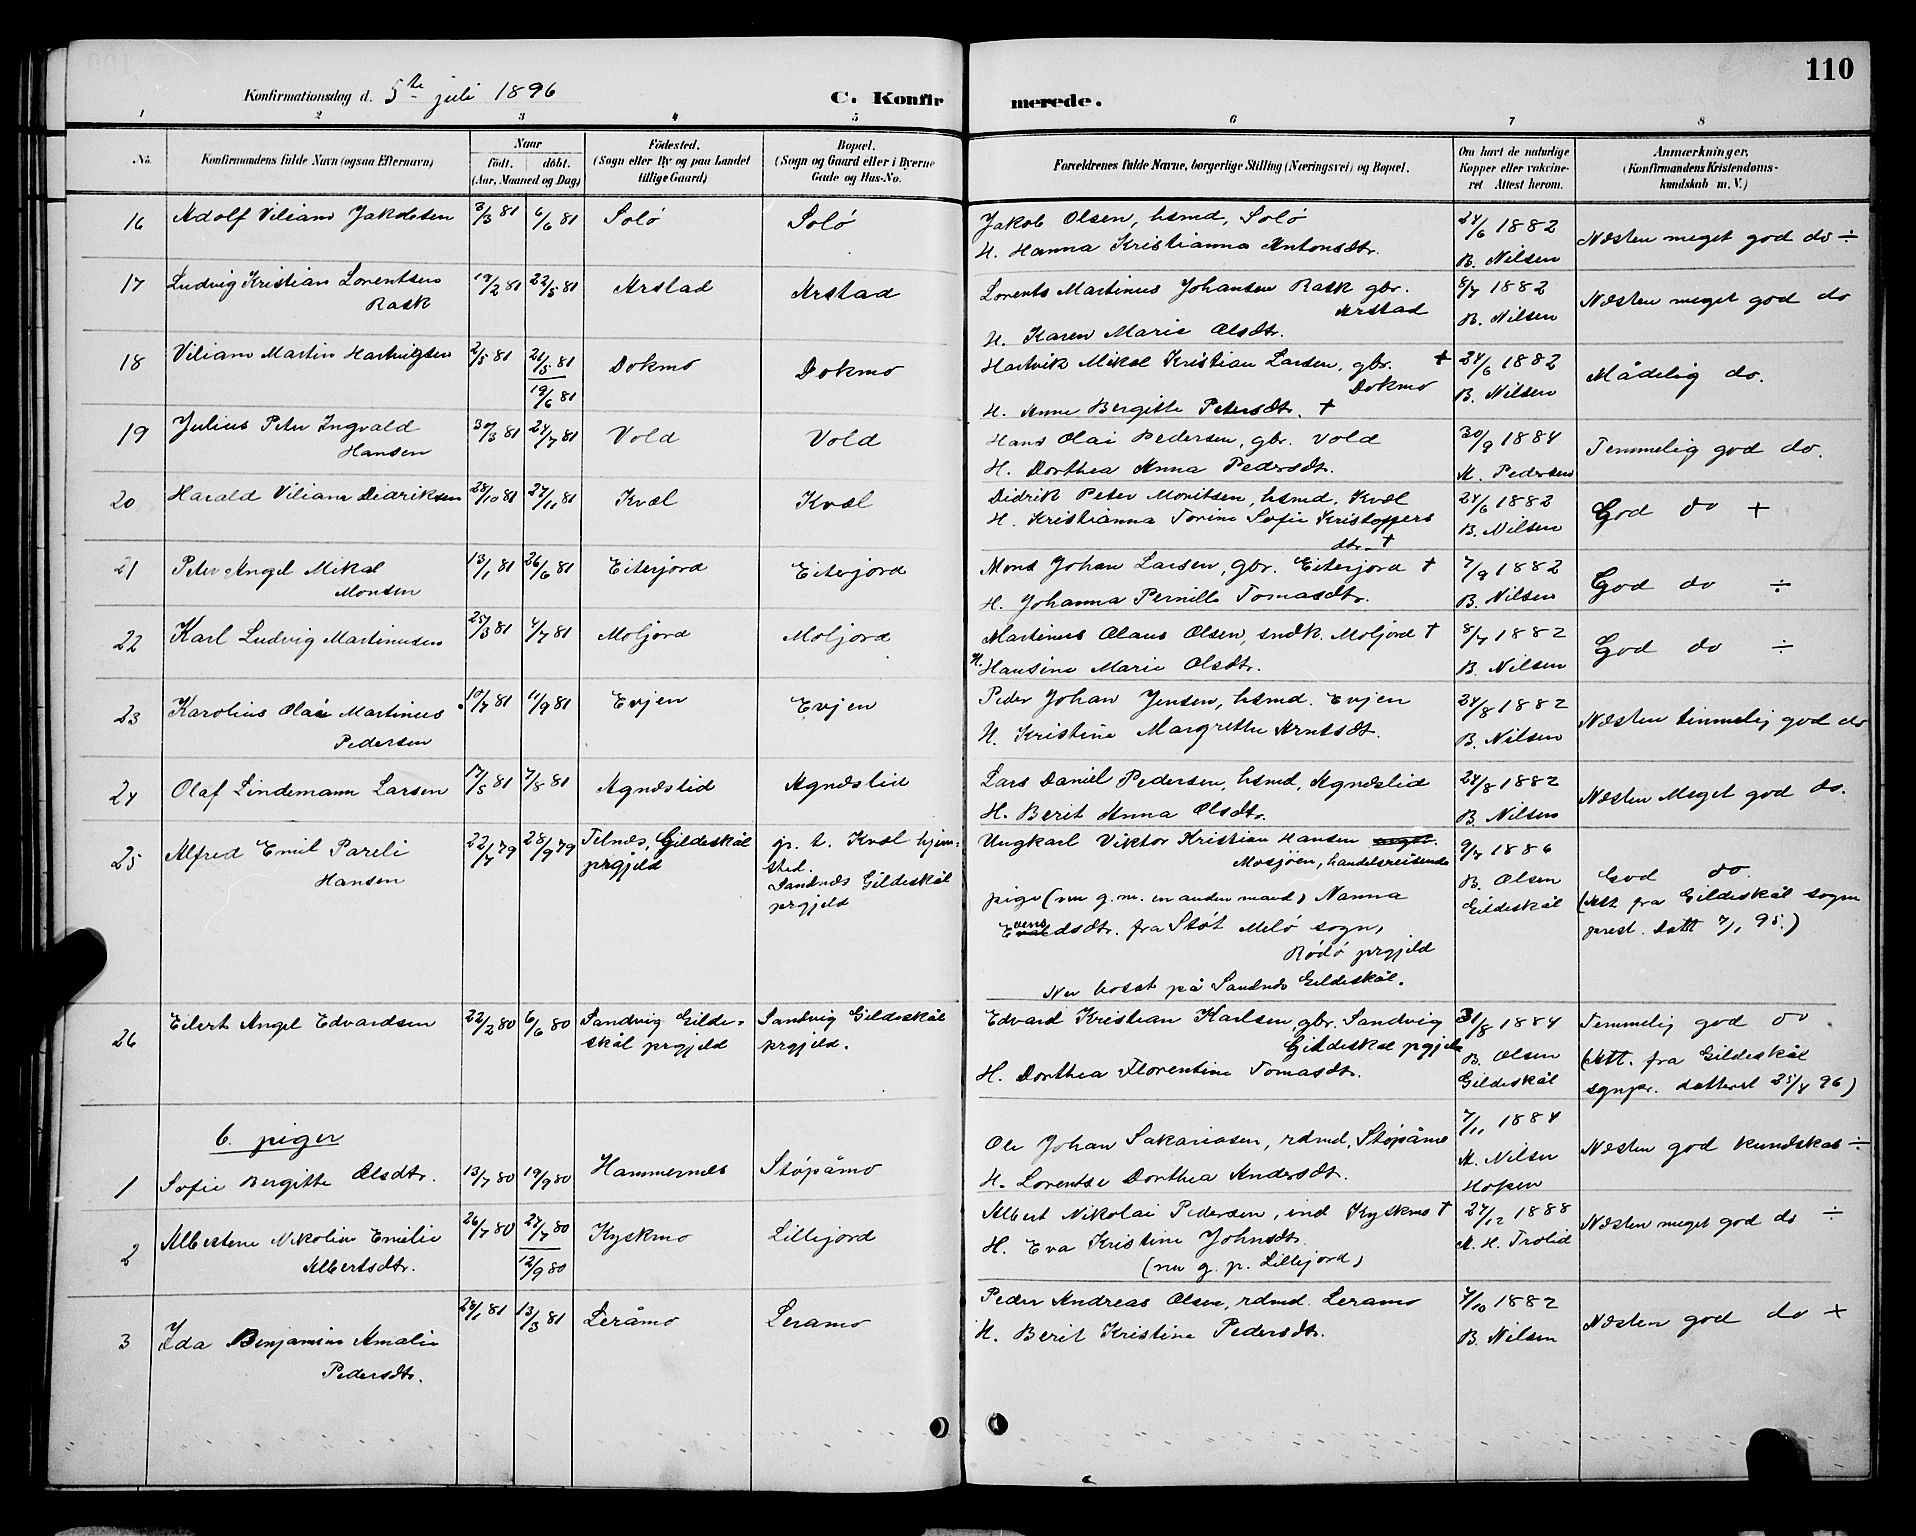 110
Konfirmationsdag d. 5te juli 1896
C. Konfirmerede.
1 2 3 4 5 6 7 8
No.
Konfirmandens fulde Navn (ogsaa Efternavn)
Naar
födt. döbt.
(Aar, Maaned og Dag)
Födested.
(Sogn eller By og paa Landet
tillige Gaard)
Bopæl.
(Sogn og Gaard eller i Byerne
Gade og Hus-No.
Forældrenes fulde Navne, borgerlige Stilling (Næringsvei) og Bopæl.
Om havt de naturlige
Kopper eller vakcine-
ret Attest herom.
Anmærkninger.
(Konfirmandens Kristendoms-
kundskab m. V.)
16 Adolf Viliam Jakobsen 3/3 81 6/6 81 Solö Solö
Jakob Olsen, hsmd, Solö
H. Hanna Kristianna Antonsdtr.
24/6 1882
B. Nilsen
Næsten meget god do ÷
17 Ludvig Kristian Lorentsen
Rask
19/2 81 22/5 81 Arstad Arstad
Lorents Martinus Johansen Rask gbr.
Arstad
H. Karen Marie Olsdtr.
8/7 1882
B. Nilsen
Næsten meget god do
18 Viliam Martin Hartvigsen 2/5 81 21/5 81
19/6 81
Dokmo Dokmo
Hartvik Mikal Kristian Larsen, gbr. +
Dokmo
H. Anne Bergitte Petersdtr. +
24/6 1882
B. Nilsen
Mådelig do.
19 Julius Peter Ingvald
Hansen
30/3 81 24/7 81 Vold Vold
Hans Olai Pedersen, gbr. Vold
H. Dorthea Anna Pedersdtr.
30/9 1884
M. Pedersen
Temmelig god do.
20 Harald Viliam Didriksen 28/10 81 27/11 81 Kvæl Kvæl
Didrik Peter Moritsen, hsmd. Kvæl
H. Kristianna Torine Sofie Kristoffers
dtr. +
24/6 1882
B. Nilsen
God do +
21 Peter Angel Mikal
Monsen
13/1 81 26/6 81 Eiterjord Eiterjord
Mons Johan Larsen, gbr. Eiterjord +
H. Johanna Pernille Tomasdtr.
7/9 1882
B. Nilsen
God do ÷
22 Karl Ludvig Martinusen 25/3 81 4/7 81 Moljord Moljord
Martinus Olaus Olsen, sndk. Moljord +
H. Hansine Marie Olsdtr.
8/7 1882
B. Nilsen
God do ÷
23 Karolius Olai Martinus
Pedersen
10/7 81 11/9 81 Evjen Evjen
Peder Johan Jensen, hsmd. Evjen
H. Kristine Margrethe Arntsdt.
24/8 1882
B. Nilsen
Næsten timmelig god do
24 Olaf Lindemann Larsen 17/5 81 7/8 81 Agnæslid Agnæslid
Lars Daniel Pedersen, hsmd, Agnæslid
H. Berit Anna Olsdtr.
24/8 1882
B. Nilsen
Næsten Meget god do.
25 Alfred Emil Pareli
Hansen
22/7 79 28/9 79
Telnæs, Gildeskål
prgjeld
gr. t. Kvæl hjem-
sted.
Sandnæs Gildeskål
prgjeld
Ungkarl Viktor Kristian Hansen
Mosjöen, handelsreisende
pige (nu g. m. en anden mand) Nanna
Evensdsdtr. fra Støt Melö sogn,
Rödö prgjeld
Nu bosat på Sandnæs Gildeskål.
9/7 1886
B. Olsen
Gildeskål
God do.
(Att fra Gildeskål sogne
prest. datt 7/1 95.)
26 Eilert Angel Edvardsen 22/2 80 6/6 80
Sandvig Gilde-
skål prgjeld
Sandvig Gildeskål
prgjeld.
Edvard Kristian Karlsen, gbr. Sandvig
Gildeskål pgjeld
H. Dorthea Florentine Tomasdtr.
31/8 1884
B. Olsen
Gildeskål
Temmelig god do
(Att. fra Gildeskål
sgnpr. datteret 25/4 96)
6. piger
1 Sofie Bergitte Olsdtr. 13/7 80 19/9 80 Hammernes Støpåmo
Ole Johan Sakariasen, rdmd, Støpåmo
H. Lorentse Dorthea Andersdt.
7/11 1884
M. Nilsen
Hopen
Næsten god kundskab ÷
2 Albertine Nikoline Emilie
Albertsdtr.
26/7 80 27/7 80
12/9 80
Kyskmo Lillejord
Albert Nikolai Pedersen, ind Kyskmo +
H. Eva Kristine Johnsdt.
(nu g. p. Lillejord)
27/12 1888
M. H. Trolid
Næsten meget god do ÷
3 Ida Benjamine Amalie
Pedersdtr.
28/1 81 13/3 81 Leråmo Leramo
Peder Andreas Olsen, rdmd. Leramo
H. Berit Kristine Pedersdtr.
7/10 1882
B. Nilsen
Næsten god do +